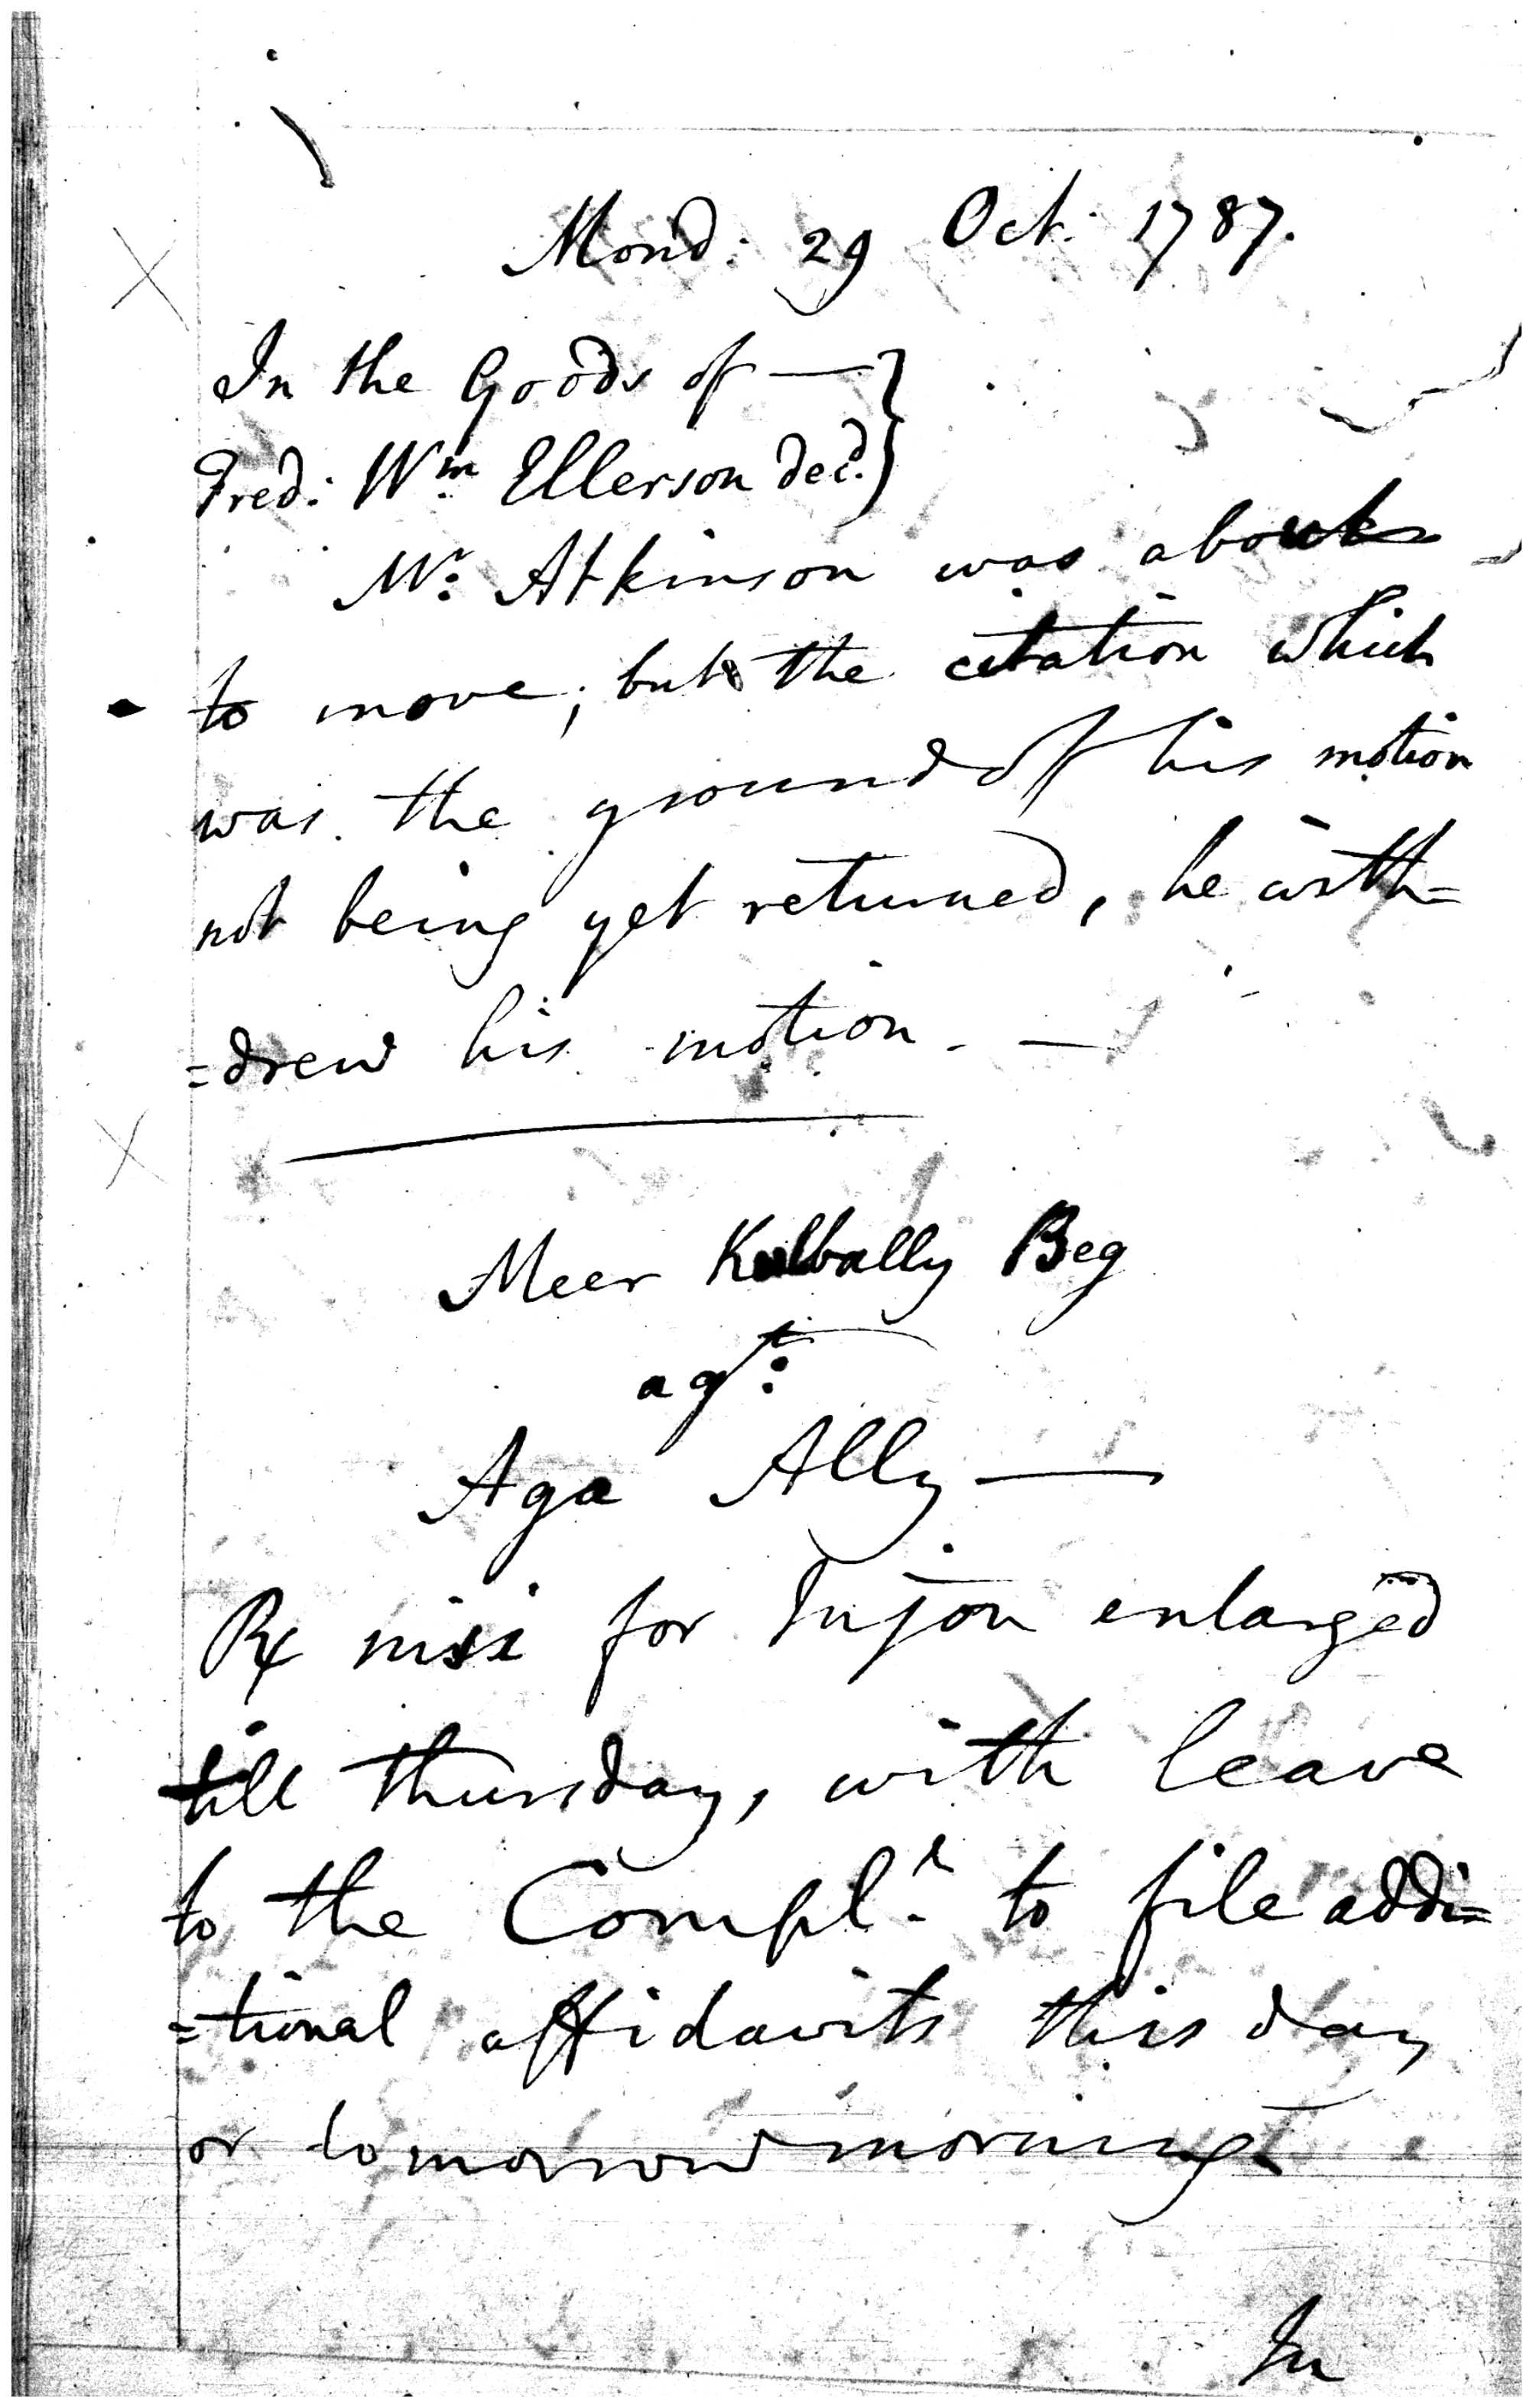 Mond: 29 Oct: 1787.
In the Goods of —
Fred: Wm Ellerson decd.
Mr: Atkinson was about
to move; but the citation which
was the ground of his motion
not being yet returned, he with=
=drew his motion. —
Meer Kulbally Beg
agt:
Aga Ally —
Rx nisi for Injon enlarged
till thursday, with leave
to the Complt. to file addi=
=tional affidavits this day
or tomorrow morning
In